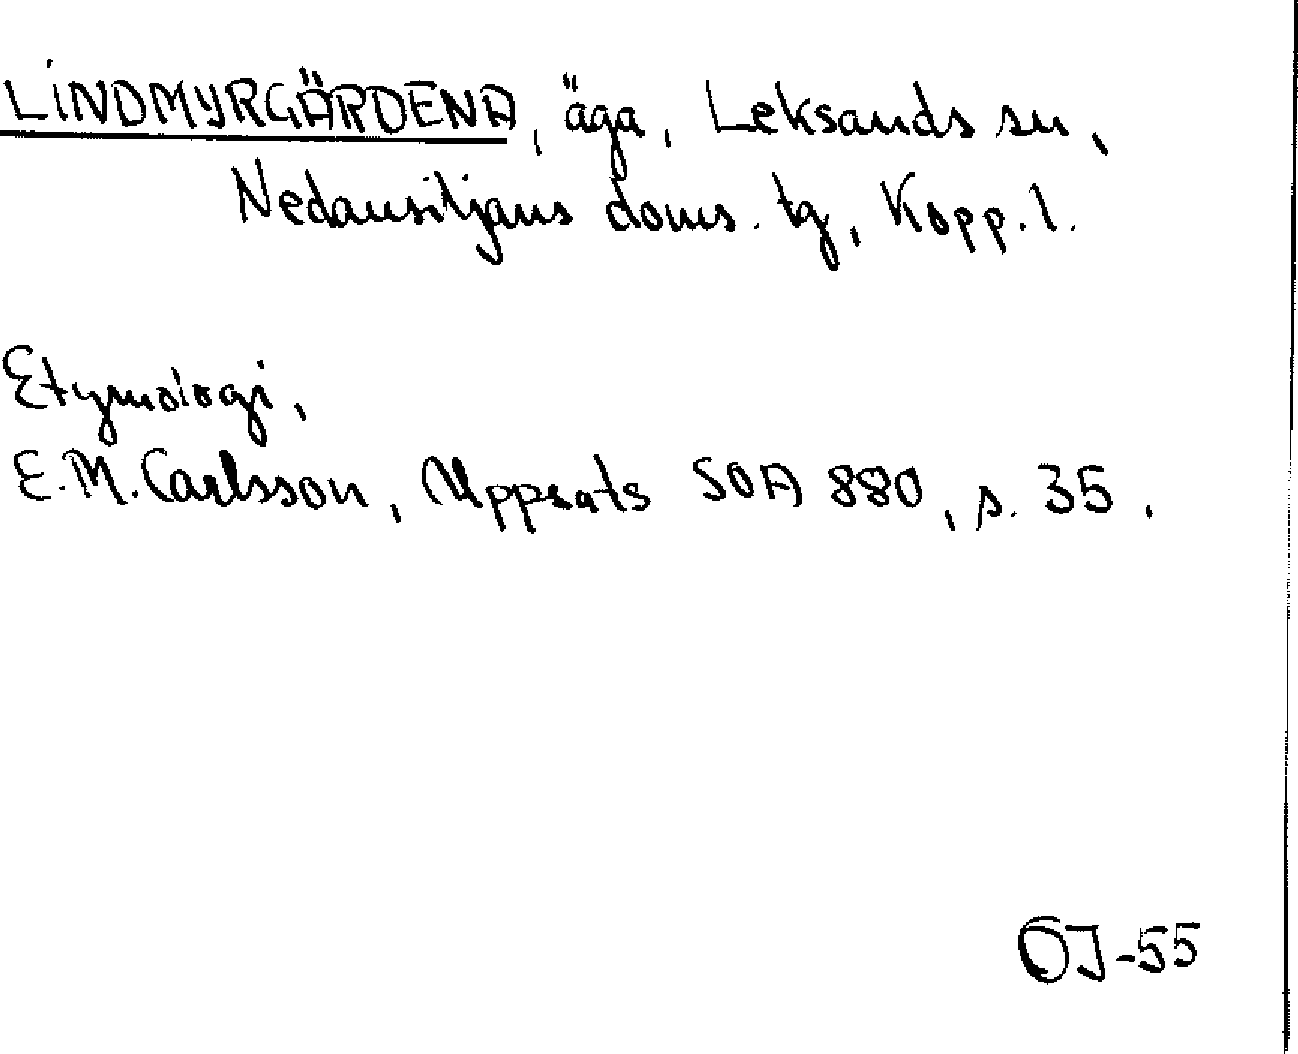 LINDMYRGÄRDENA, äga, Leksands sn,
Nedansiljans doms. tg, Kopp. l.
Etymologi,
E.M. Carlsson, Uppsats SOA 880, s. 35.
OJ-55